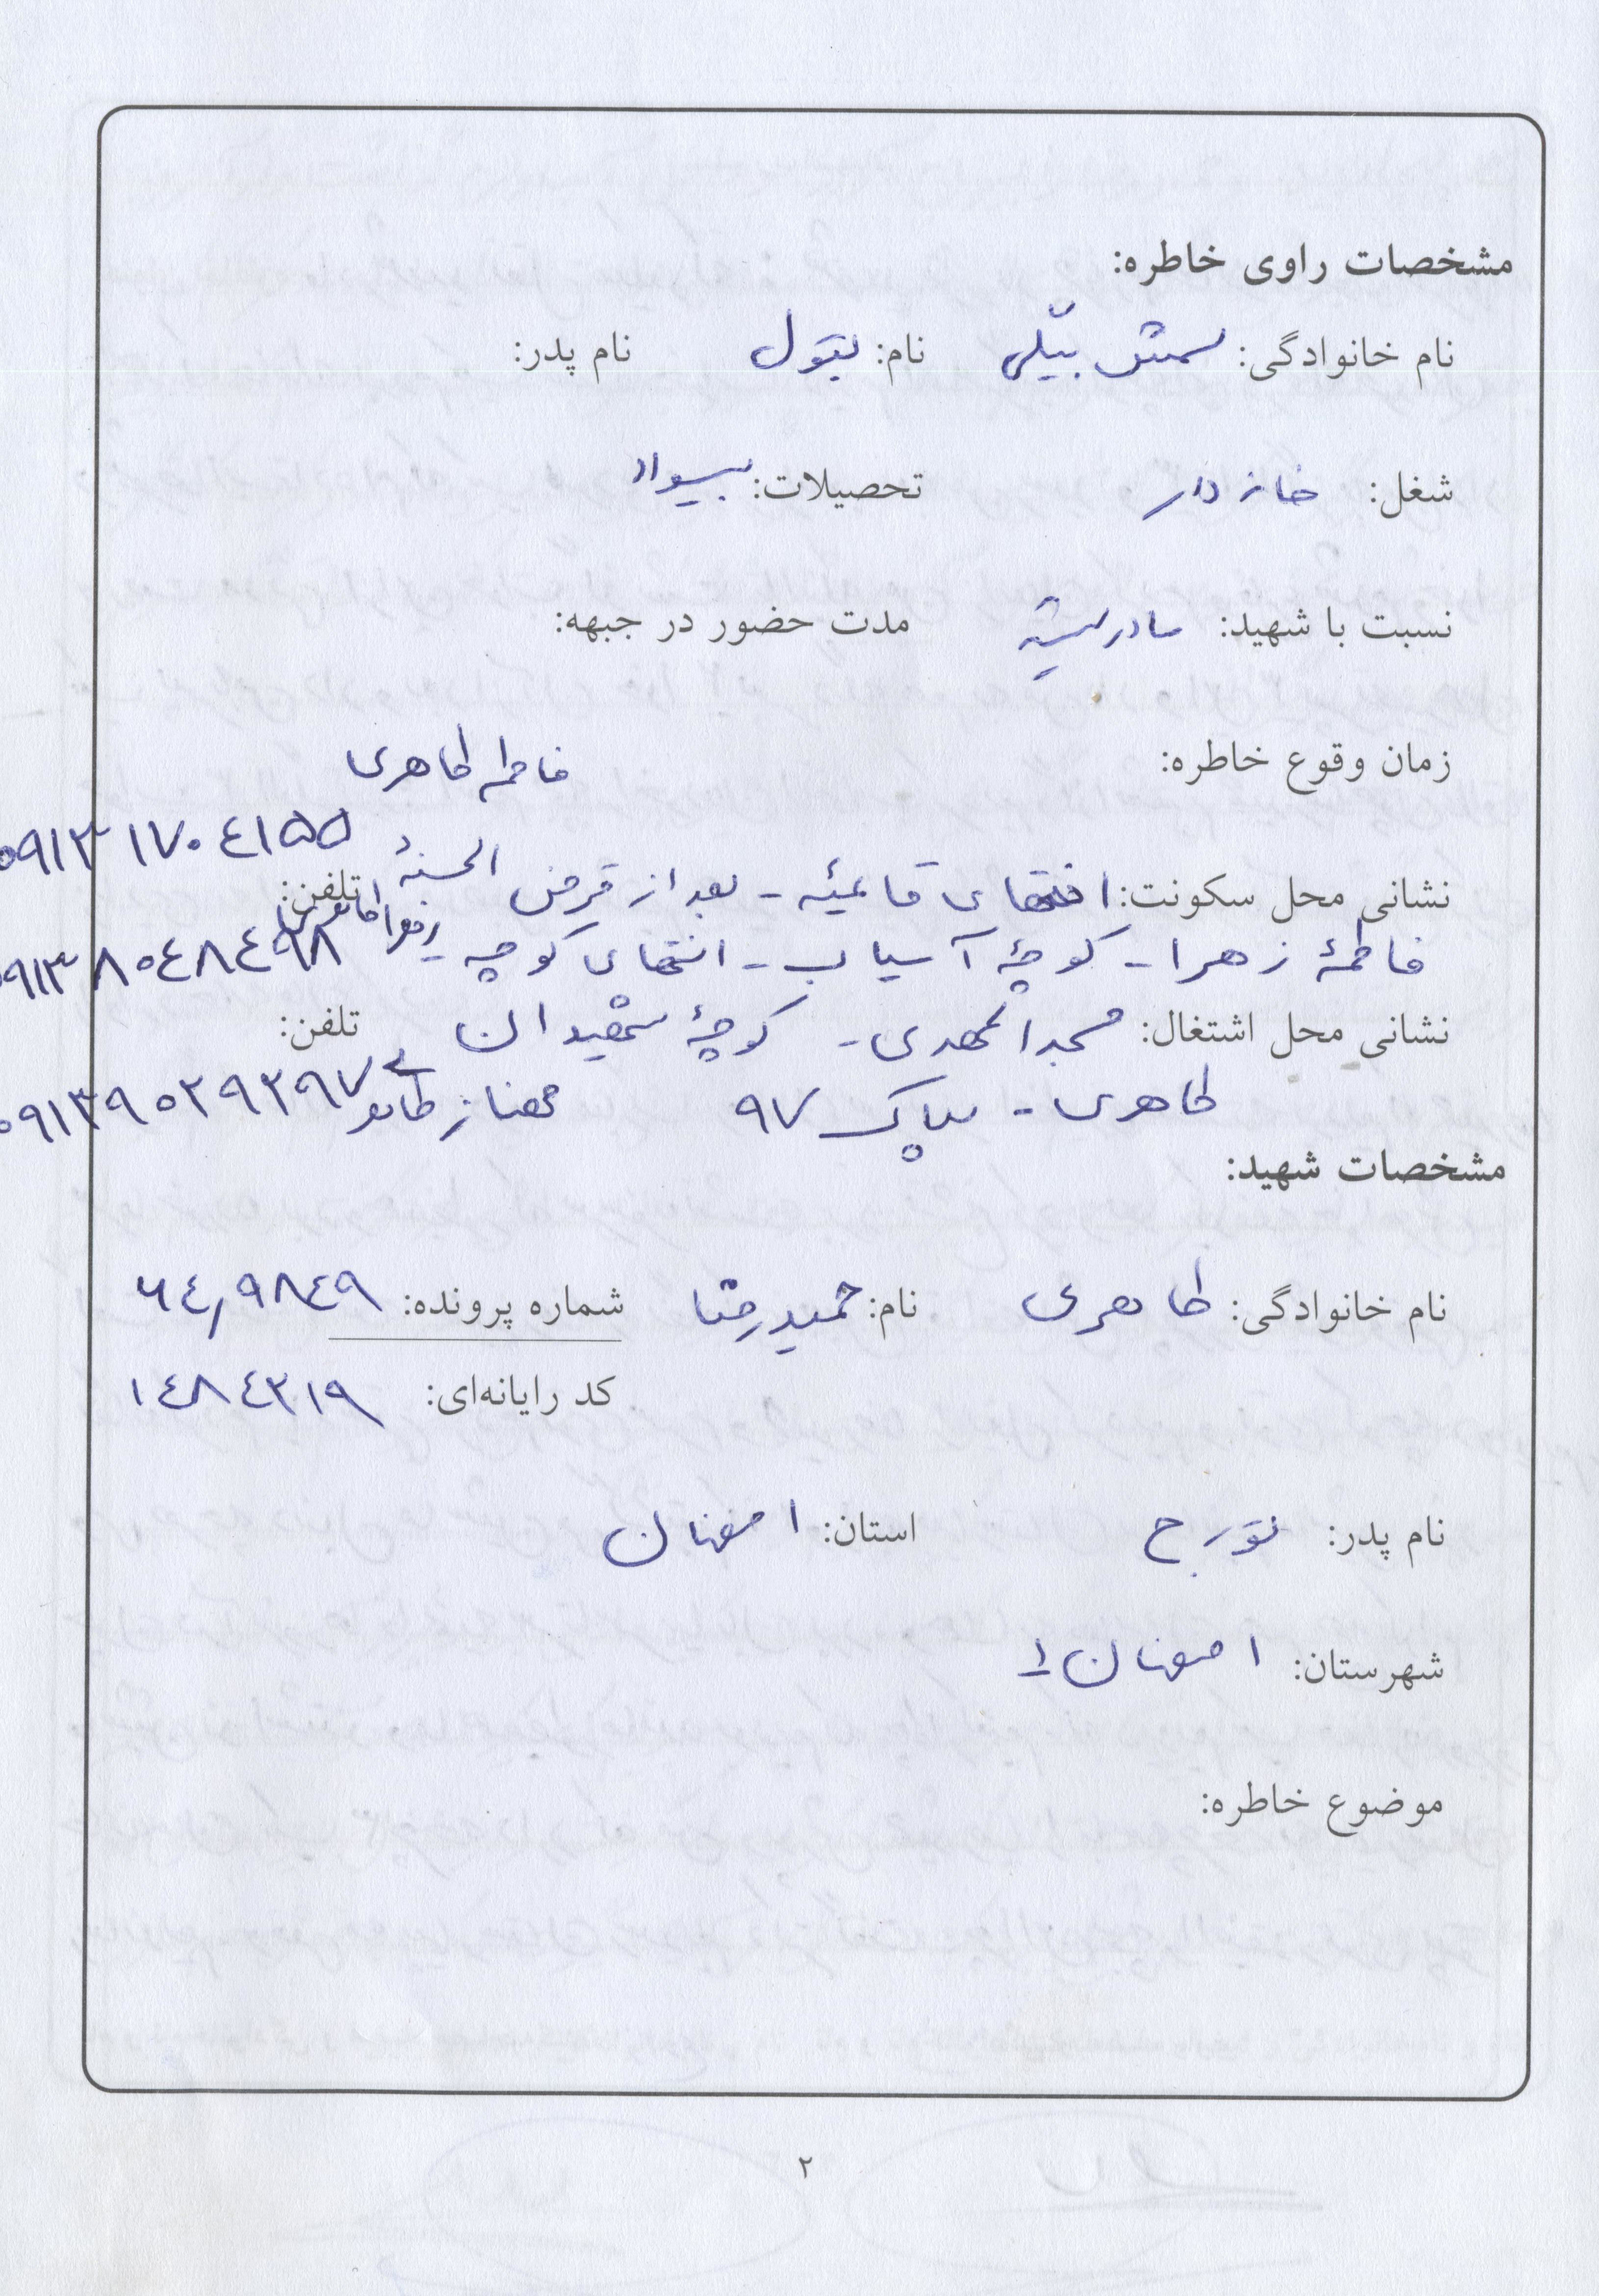 مشخصات راوی خاطره:
نام خانوادگی: شمس بیگی نام: بتول نام پدر:
شغل: خانه دار تحصیلات: بیسواد
نسبت با شهید: مادر مدت حضور در جبهه:
زمان وقوع خاطره: فاطمه طاهری
۰۹۱۳ ۱۷۰ ۴۱۵۵
نشانی محل سکونت: انتهای قائمیه - بعد از قرض الحسنهٔ تلفن:
فاطمهٔ زهرا - کوچهٔ آسیاب - انتهای کوچه - ۰۹۱۳ ۸۰۴۸۴۹۸
نشانی محل اشتغال: مسجد المهدی - کوچهٔ شهیدان تلفن:
طاهری - پلاک ۹۷ مهناز ۰۹۱۳۹۰۲۹۲۹۷
مشخصات شهید:
نام خانوادگی: طاهری نام: حمیدرضا شماره پرونده: ۶۴,۹۸۴۹
کد رایانه‌ای: ۱۴۸۴۲۱۹
نام پدر: تورج استان: اصفهان
شهرستان: اصفهان ۱
موضوع خاطره:
۲